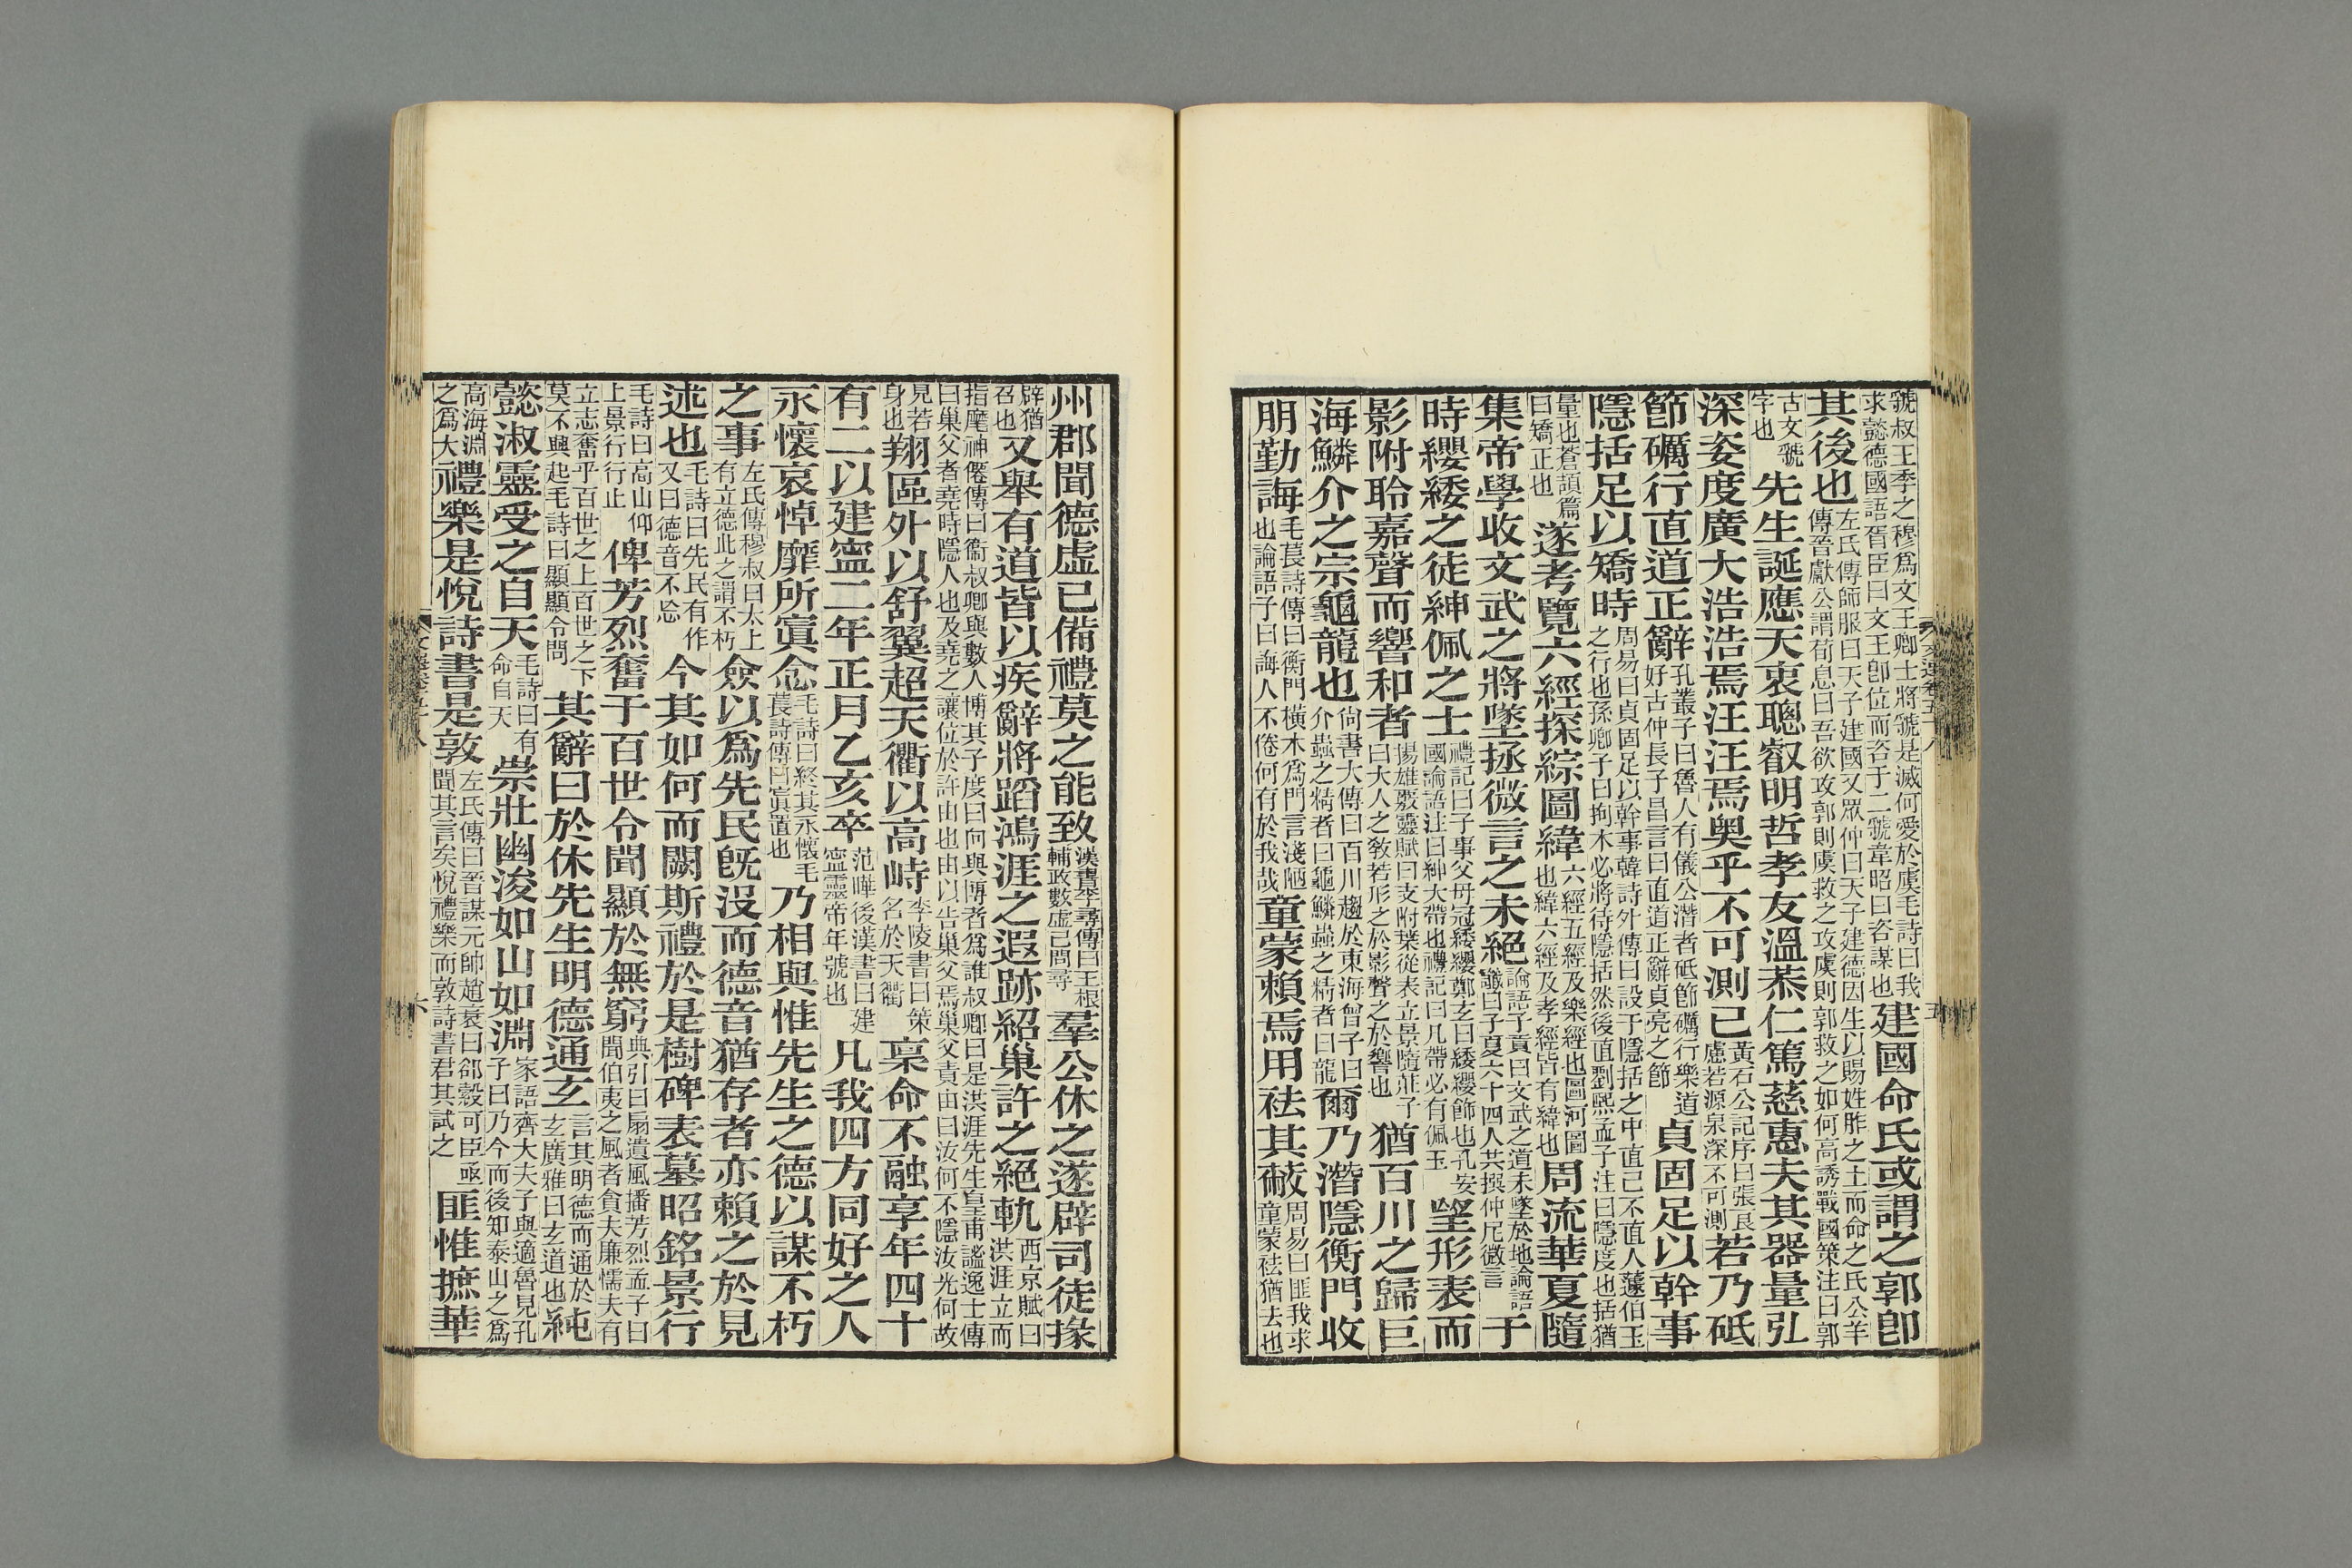 虢叔王季之穆爲文王卿士將虢是滅何愛於虞毛詩曰我求懿德國語胥臣曰文王卽位而咨于二虢韋昭曰咨謀也建國命氏或謂之郭卽
其後也左氏傳師服曰天子建國又眾仲曰天子建德因生以賜姓胙之土而命之氏公羊傳晉獻公謂荀息曰吾欲攻郭則虞救之攻虞則郭救之如何高誘戰國策注曰郭
古文虢字也先生誕應天衷聰叡明哲孝友溫恭仁篤慈惠夫其器量弘
深姿度廣大浩浩焉汪汪焉奧乎不可測已黃石公記序曰張良慮若源泉深不可測若乃砥
節礪行直道正辭孔叢子曰魯人有儀公潛者砥節礪行樂道好古仲長子昌言曰直道正辭貞亮之節貞固足以幹事
隱括足以矯時周易曰貞固足以幹事韓詩外傳曰設于隱括之中直己不直人蘧伯玉之行也孫卿子曰拘木必將待隱括然後直劉熙孟子注曰隱度也括猶
量也蒼頡篇曰矯正也遂考覽六經探綜圖緯六經五經及樂經也圖河圖也緯六經及孝經皆有緯也周流華夏隨
集帝學收文武之將墜拯微言之未絕論語子貢曰文武之道未墜於地論語讖曰子夏六十四人共撰仲尼微言于
時纓緌之徒紳佩之士禮記曰子事父母冠緌纓鄭玄曰緌纓飾也孔安國論語注曰紳大帶也禮記曰凡帶必有佩玉望形表而
影附聆嘉聲而響和者揚雄覈靈賦曰支附葉從表立景隨莊子曰大人之敎若形之於影聲之於響也猶百川之歸巨
海鱗介之宗龜龍也尙書大傳曰百川趨於東海曾子曰介蟲之精者曰龜鱗蟲之精者曰龍爾乃潛隱衡門收
朋勤誨毛萇詩傳曰衡門橫木爲門言淺陋也論語子曰誨人不倦何有於我哉童蒙賴焉用祛其蔽周易曰匪我求童蒙祛猶去也
州郡聞德虛己備禮莫之能致漢書李尋傳曰王根輔政數虛己問尋羣公休之遂辟司徒掾
辟猶召也又舉有道皆以疾辭將蹈鴻涯之遐跡紹巢許之絕軌西京賦曰洪涯立而
指麾神僊傳曰衞叔卿與數人博其子度曰向與博者爲誰叔卿曰是洪涯先生皇甫謐逸士傳曰巢父者堯時隱人也及堯之讓位於許由也由以告巢父焉巢父責由曰汝何不隱汝光何故
見若身也翔區外以舒翼超天衢以高峙李陵書曰策名於天衢稟命不融享年四十
有二以建寧二年正月乙亥卒范曄後漢書曰建寧靈帝年號也凡我四方同好之人
永懷哀悼靡所寘念毛詩曰終其永懷毛萇詩傳曰寘置也乃相與惟先生之德以謀不朽
之事左氏傳穆叔曰太上有立德此之謂不朽僉以爲先民旣沒而德音猶存者亦賴之於見
述也毛詩曰先民有作又曰德音不忘今其如何而闕斯禮於是樹碑表墓昭銘景行
毛詩曰高山仰上景行行止俾芳烈奮于百世令聞顯於無窮典引曰扇遺風播芳烈孟子曰聞伯夷之風者貪夫廉懦夫有
立志奮乎百世之上百世之下莫不興起毛詩曰顯顯令問其辭曰於休先生明德通玄言其明德而通於玄廣雅曰玄道也純
懿淑靈受之自天毛詩曰有命自天崇壯幽浚如山如淵家語齊大夫子與適魯見孔子曰乃今而後知泰山之爲
高海淵之爲大禮樂是悅詩書是敦左氏傳曰晉謀元帥趙衰曰郤縠可臣亟聞其言矣悅禮樂而敦詩書君其試之匪惟摭華